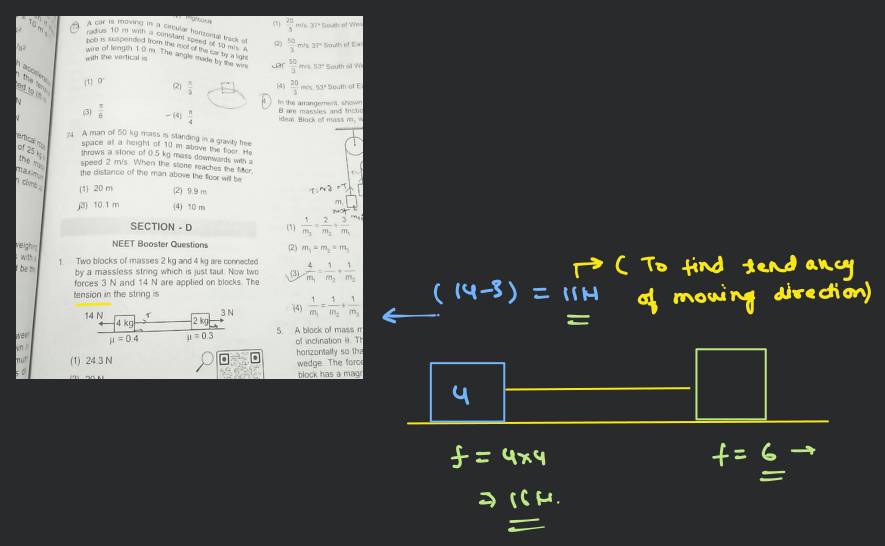 A car is moving in a circular horizontal track of
radius 10 m with a constant speed of 10 m/s. A
bob is suspended from the roof of the car by a light
wire of length 1.0 m. The angle made by the wire
with the vertical is
(1) 0°
(2) π/3
(3) π/6
(4) π/4
74. A man of 50 kg mass is standing in a gravity free
space at a height of 10 m above the floor. He
throws a stone of 0.5 kg mass downwards with a
speed 2 m/s. When the stone reaches the floor,
the distance of the man above the floor will be
(1) 20 m
(2) 9.9 m
(3) 10.1 m
(4) 10 m
SECTION - D
NEET Booster Questions
1. Two blocks of masses 2 kg and 4 kg are connected
by a massless string which is just taut. Now two
forces 3 N and 14 N are applied on blocks. The
tension in the string is
14 N
4 kg
T
2 kg
3 N
μ = 0.4
μ = 0.3
(1) 24.3 N
(1) 20/3 m/s, 37° South of
(2) 50/3 m/s, 37° South of
50/3 m/s, 53° South of
(4) 20/3 m/s, 53° South of
In the arrangement shown
B are massless and
ideal. Block of mass m
(1) 1/m₃ = 2/m₂ + 3/m
(2) m₁ = m₂ = m₃
(3) 4/m₁ = 1/m₂ + 1/m₃
(4) 1/m₁ = 1/m₂ + 1/m₃
5. A block of mass
of inclination θ.
horizontally so
wedge. The force
block has a
(14-3) = 11N
( To find tendancy
of moving direction)
4
f = 4x4
⇒ 16N.
f = 6 →